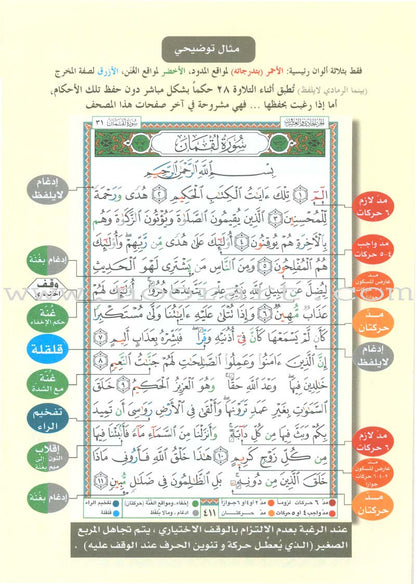 مثال توضيحي
فقط بثلاثة ألوان رئيسية: الأحمر (بتدرجاته) لمواقع المدود، الأخضر لمواقع الغنن، الأزرق لصفة المخرج
(بينما الرمادي لا يلفظ) تُطبق أثناء التلاوة ٢٨ حكماً بشكل مباشر دون حفظ تلك الأحكام،
أما إذا رغبت بحفظها ... فهي مشروحة في آخر صفحات هذا المصحف
سُورَةُ لُقْمَان ٣١
سُورَةُ لُقْمَان
بِسْمِ اللَّهِ الرَّحْمَٰنِ الرَّحِيمِ
الٓمٓ ١ تِلْكَ ءَايَٰتُ ٱلْكِتَٰبِ ٱلْحَكِيمِ ٢ هُدًى وَرَحْمَةً
لِّلْمُحْسِنِينَ ٣ ٱلَّذِينَ يُقِيمُونَ ٱلصَّلَوٰةَ وَيُؤْتُونَ ٱلزَّكَوٰةَ وَهُم
بِٱلْأَخِرَةِ هُمْ يُوقِنُونَ ٤ أُوْلَٰٓئِكَ عَلَىٰ هُدًى مِّن رَّبِّهِمْ وَأُوْلَٰٓئِكَ
هُمُ ٱلْمُفْلِحُونَ ٥ وَمِنَ ٱلنَّاسِ مَن يَشْتَرِى لَهْوَ ٱلْحَدِيثِ
لِيُضِلَّ عَن سَبِيلِ ٱللَّهِ بِغَيْرِ عِلْمٍ وَيَتَّخِذَهَا هُزُوًا أُوْلَٰٓئِكَ لَهُمْ
عَذَابٌ مُّهِينٌ ٦ وَإِذَا تُتْلَىٰ عَلَيْهِ ءَايَٰتُنَا وَلَّىٰ مُسْتَكْبِرًا
كَأَن لَّمْ يَسْمَعْهَا كَأَنَّ فِىٓ أُذُنَيْهِ وَقْرًا فَبَشِّرْهُ بِعَذَابٍ أَلِيمٍ ٧
إِنَّ ٱلَّذِينَ ءَامَنُوا۟ وَعَمِلُوا۟ ٱلصَّٰلِحَٰتِ لَهُمْ جَنَّٰتُ ٱلنَّعِيمِ ٨
خَٰلِدِينَ فِيهَا وَعْدَ ٱللَّهِ حَقًّا وَهُوَ ٱلْعَزِيزُ ٱلْحَكِيمُ ٩ خَلَقَ
ٱلسَّمَٰوَٰتِ بِغَيْرِ عَمَدٍ تَرَوْنَهَا وَأَلْقَىٰ فِى ٱلْأَرْضِ رَوَٰسِىَ أَن تَمِيدَ
بِكُمْ وَبَثَّ فِيهَا مِن كُلِّ دَآبَّةٍ وَأَنزَلْنَا مِنَ ٱلسَّمَآءِ مَآءً فَأَنۢبَتْنَا فِيهَا
مِن كُلِّ زَوْجٍ كَرِيمٍ ١٠ هَٰذَا خَلْقُ ٱللَّهِ فَأَرُونِى مَاذَا
خَلَقَ ٱلَّذِينَ مِن دُونِهِۦ بَلِ ٱلظَّٰلِمُونَ فِى ضَلَٰلٍ مُّبِينٍ ١١
إدغام
لا يلفظ
إدغام بغنّة
وقف
غُنّة
حكم الإخفاء
قلقلة
غُنّة
مع الشدة
تفخيم
الراء
إقلاب
النون إلى
ميم بغنّة
إدغام بغنّة
مد لازم
٦ حركات
مد واجب
٤-٥ حركات
مد
عارض للسكون
مـد
حركتان
إدغام
لا يلفظ
مد لازم
٦ حركات
مد
عارض للسكون
جوازاً
مـد
حركتان
٤١١
تفخيم الراء
قلقلة
عند الرغبة بعدم الالتزام بالوقف الاختياري ، يتم تجاهل المربع
الصغير (الذي يُعطّل حركة و تنوين الحرف عند الوقف عليه) .